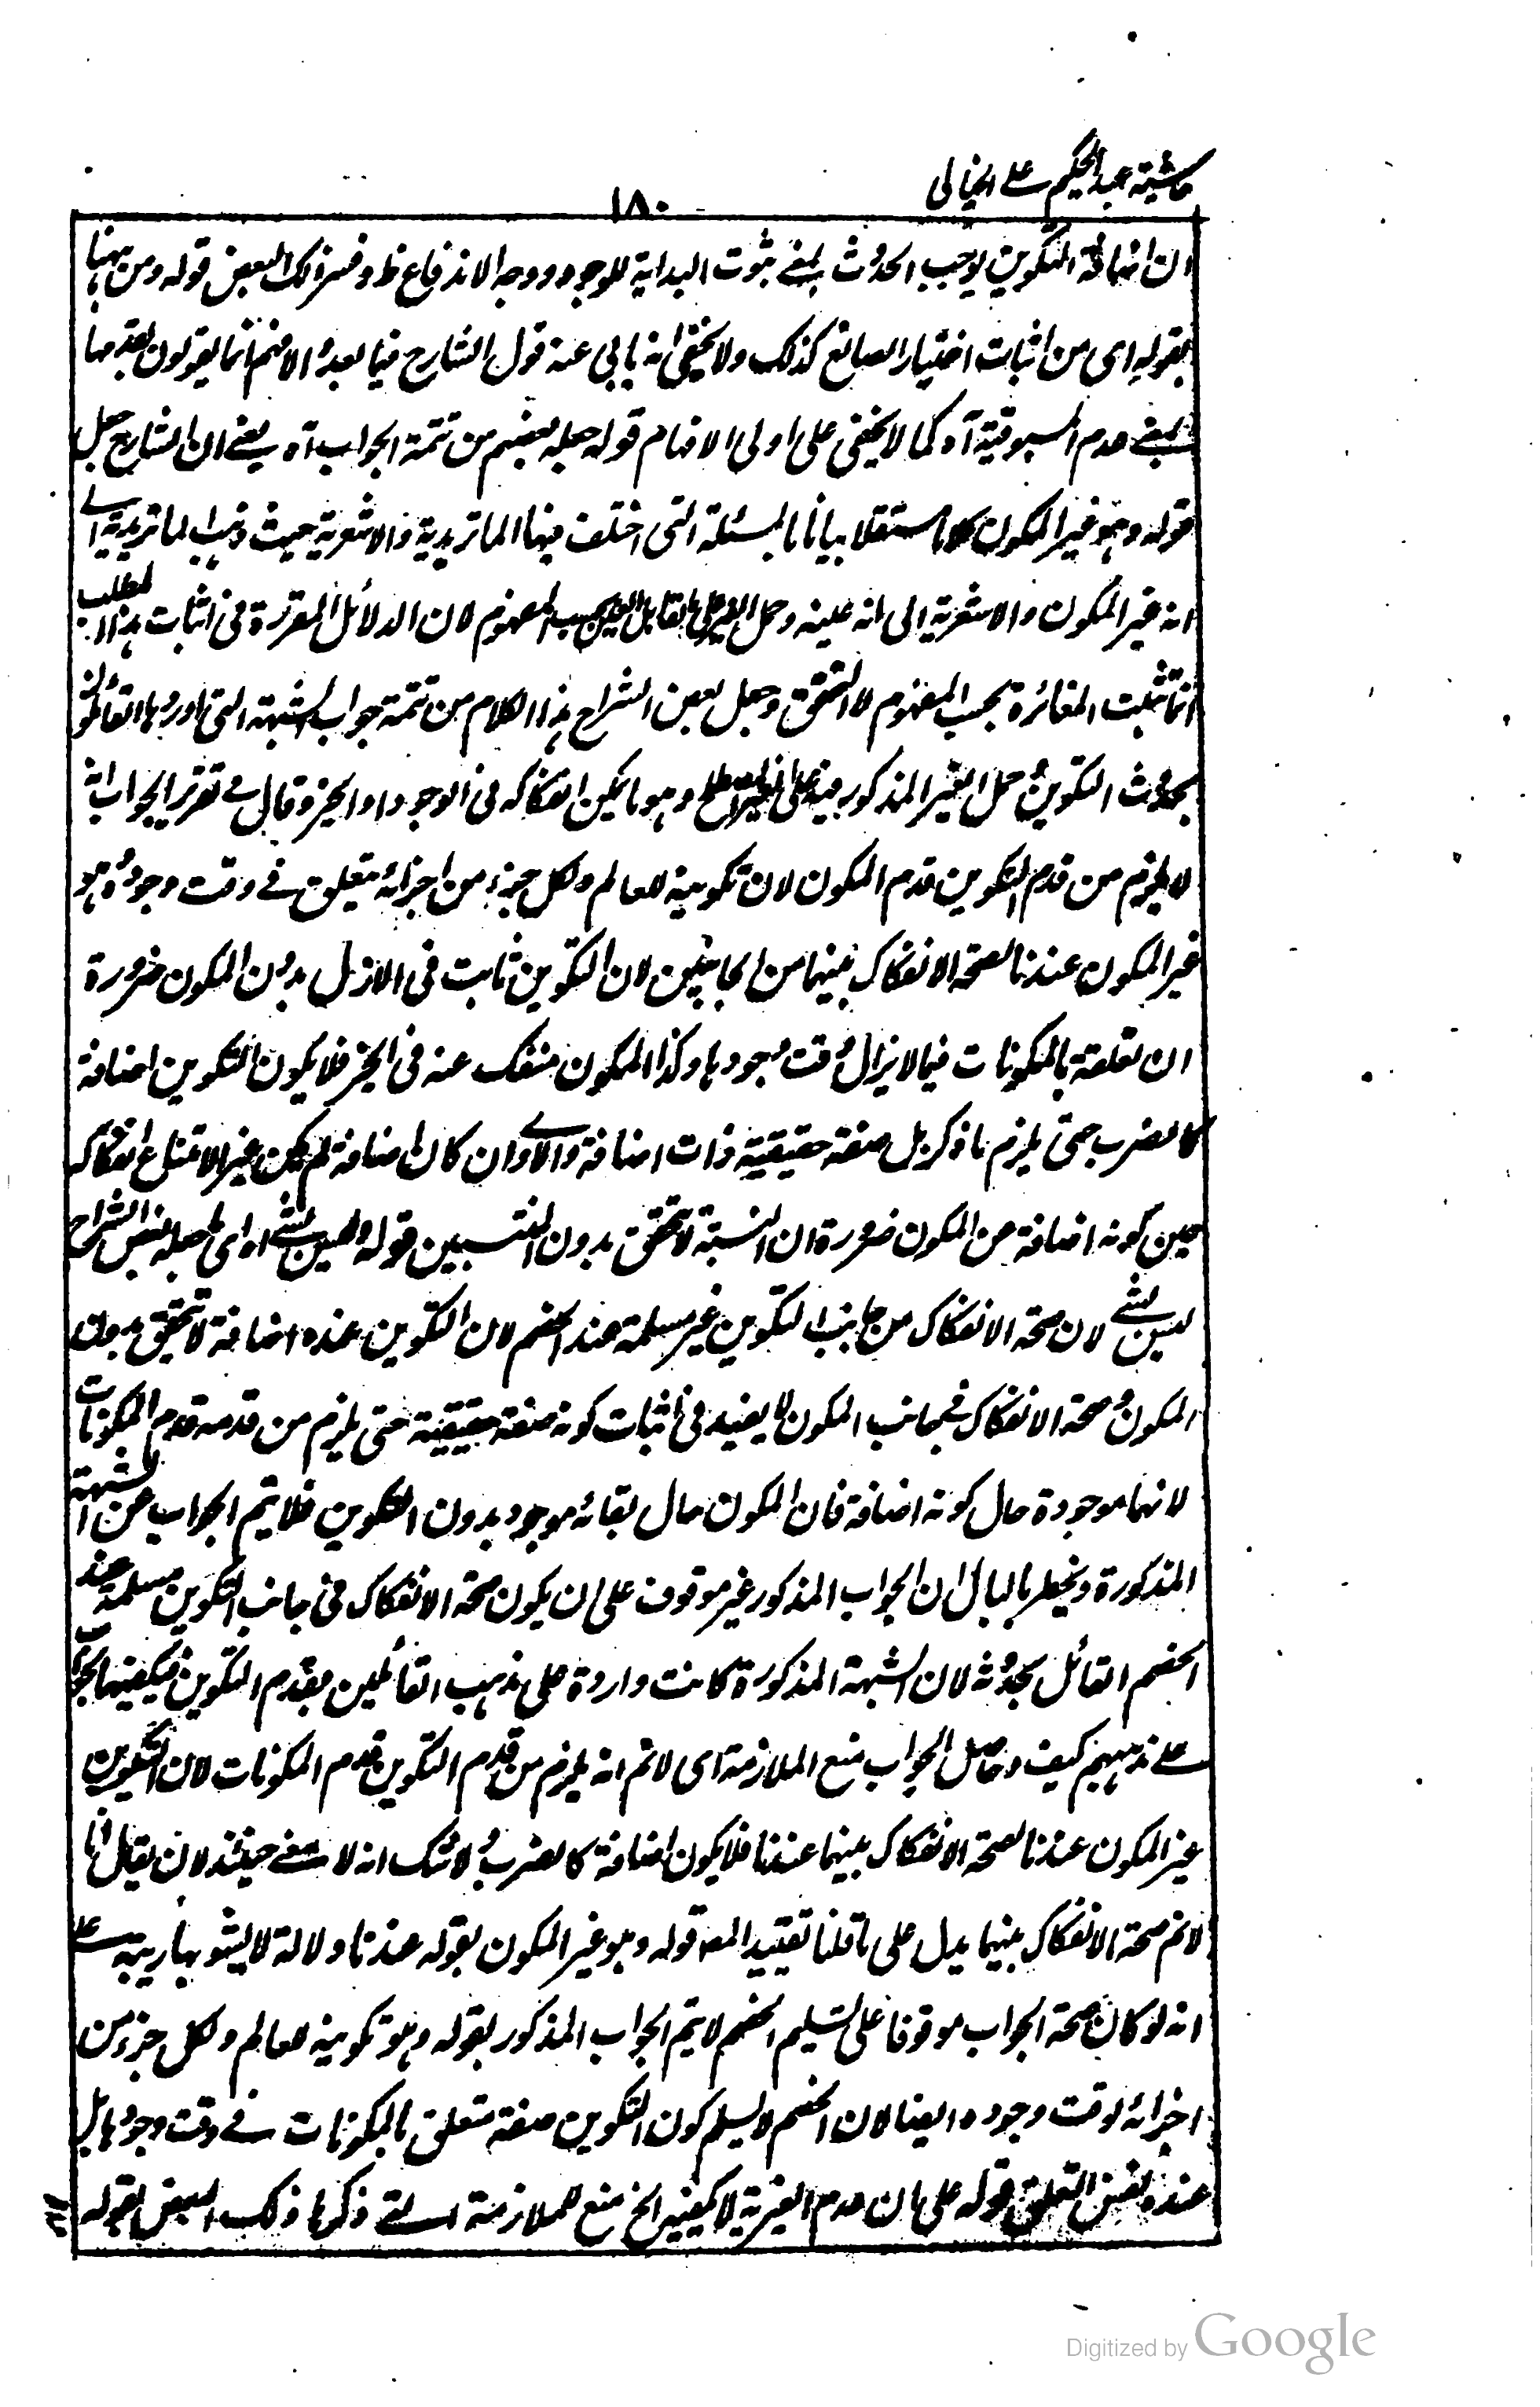 حاشية عبد الحكيم على الخيالى
١٨٠
ان اضافة التكوين يوجب الحدوث بمعنى ثبوت البداية للوجود ووجه الاندفاع ظ وفسر ذلك البعض قوله ومن ههنا
بقوله اى من اثبات اختيار الصانع كذلك ولا يخفى انه يابى عنه قول الشارح فيما بعد والا فهم انما يقولون بقدمها
بمعنى عدم المسبوقية آه كما لا يخفى على اولى الافهام قوله جعله بعضهم من تتمة الجواب آه يعنى ان الشارح جعل
قوله وهو غير المكون كلاما مستقلا بيانا لمسئلة التى اختلف فيها الماتريدية والاشعرية حيث ذهب الماتريدية الى
انه غير المكون والاشعرية الى انه عينه وحمل الغير على مقابل العين بحسب المفهوم لان الدلائل المقررة فى اثبات هذا المطلب
انما تثبت المغائرة بحسب المفهوم لا التحقق وجعل بعض الشراح هذا الكلام من تتمة جواب الشبهة التى اوردها القائلون
بحدوث التكوين وحمل الغير المذكور فيه على الغير المصطلح وهو ما يمكن انفكاكه فى الوجود او الحيز وقال فى تقرير الجواب انه
لا يلزم من قدم التكوين قدم المكون لان تكوينه للعالم ولكل جزء من اجزائه يتعلق فى وقت وجوده وهو
غير المكون عندنا لصحة الانفكاك بينهما من الجانبين لان التكوين ثابت فى الازل بدون المكون ضرورة
ان تعلقه بالمكونات فيما لا يزال وقت وجودها وكذا المكون منفك عنه فى الحيز فلا يكون التكوين اضافة
كالضرب حتى يلزم ما ذكر بل صفة حقيقية ذات اضافة والا اى وان كان اضافة لم يكن غيرا لامتناع انفكاكه
حين كونه اضافة عن المكون ضرورة ان النسبة لا تحقق بدون المنتسبين قوله وليس بشئ اه اى ما جعله بعض الشراح
ليس بشئ لان صحة الانفكاك من جانب التكوين غير مسلمة عند الخصم لان التكوين عنده اضافة لا تحقق بدون
المكون وصحة الانفكاك فى جانب المكون لا يفيد فى اثبات كونه صفة حقيقية حتى يلزم من قدمه قدم المكونات
لانها موجودة حال كونه اضافة فان المكون حال بقائه موجود بدون التكوين فلا يتم الجواب عن الشبهة
المذكورة ويخطر بالبال ان الجواب المذكور غير موقوف على ان يكون صحة الانفكاك فى جانب التكوين مسلمة عند
الخصم القائل بحدوثه لان الشبهة المذكورة كانت واردة على مذهب القائلين بقدم التكوين فيكفيها الجواب
على مذهبهم كيف وحاصل الجواب منع الملازمة اى لا نم انه يلزم من قدم التكوين قدم المكونات لان التكوين
غير المكون عندنا لصحة الانفكاك بينهما عندنا فلا يكون اضافة كالضرب ولا شك انه لا معنى حينئذ لان يقال انا
لا نم صحة الانفكاك بينهما يدل على ما قلنا تقييد المص قوله وهو غير المكون بقوله عندنا دلالة لا يشوبها ريبة على
انه لو كان صحة الجواب موقوفا على تسليم الخصم لا يتم الجواب المذكور بقوله وهو تكوينه للعالم ولكل جزء من
اجزائه لوقت وجوده ايضا لان الخصم لا يسلم كون التكوين صفة متعلق بالمكونات فى وقت وجودها بل
عنده نفس التعلق قوله على ان عدم الغيرية لا يكفيه الخ منع للملازمة التى ذكرها ذلك البعض بقوله
Digitized by Google